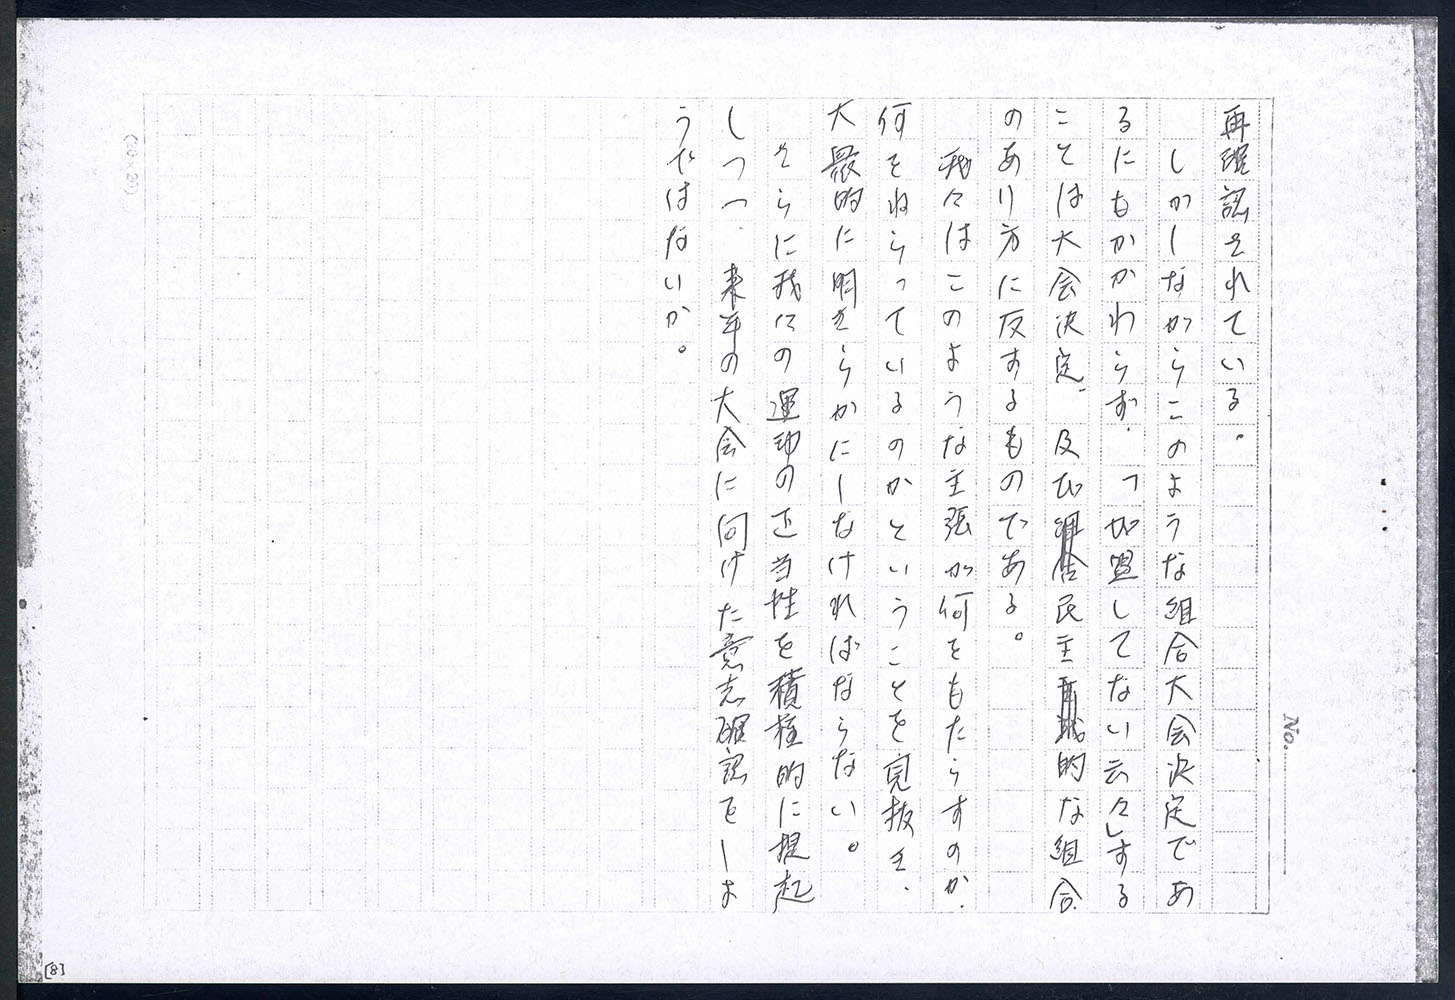 No.
再確認されている。
しかしながらこのような組合大会決定であ
るにもかかわらず、「加盟してない云々」する
ことは大会決定、及び民主的な組合
のあり方に反するものである。
我々はこのような主張が何をもたらすのか、
何をねらっているのかということを見抜き、
大衆的に明きらかにしなければならない。
さらに我々の運動の正当性を積極的に提起
しつつ、来年の大会に向けた意志確認をしよ
うではないか。
(20×20)
[8]